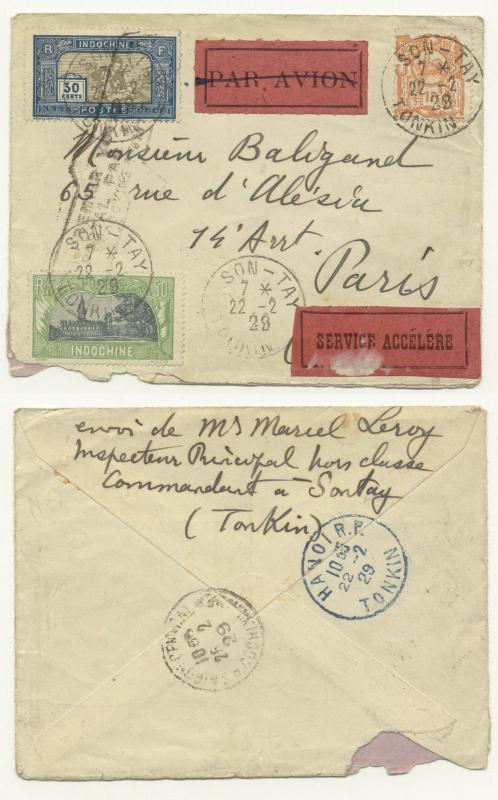 R F
INDOCHINE
30
CENTS
POSTES
PAR AVION
SON-TAY
7 *
22 -2
29
TONKIN
Monsieur Baligand
65 rue d'Alésia
14e Arrt
Paris
SON-TAY
7 *
22 -2
29
TONKIN
SON-TAY
7 *
22 -2
29
TONKIN
INDOCHINE
SERVICE ACCÉLÉRÉ
envoi de Mr Marcel Leroy
Inspecteur Principal hors classe
Commandant à Sontay
(Tonkin)
HANOI R.P.
10 35
22 -2
29
TONKIN
25
2
29